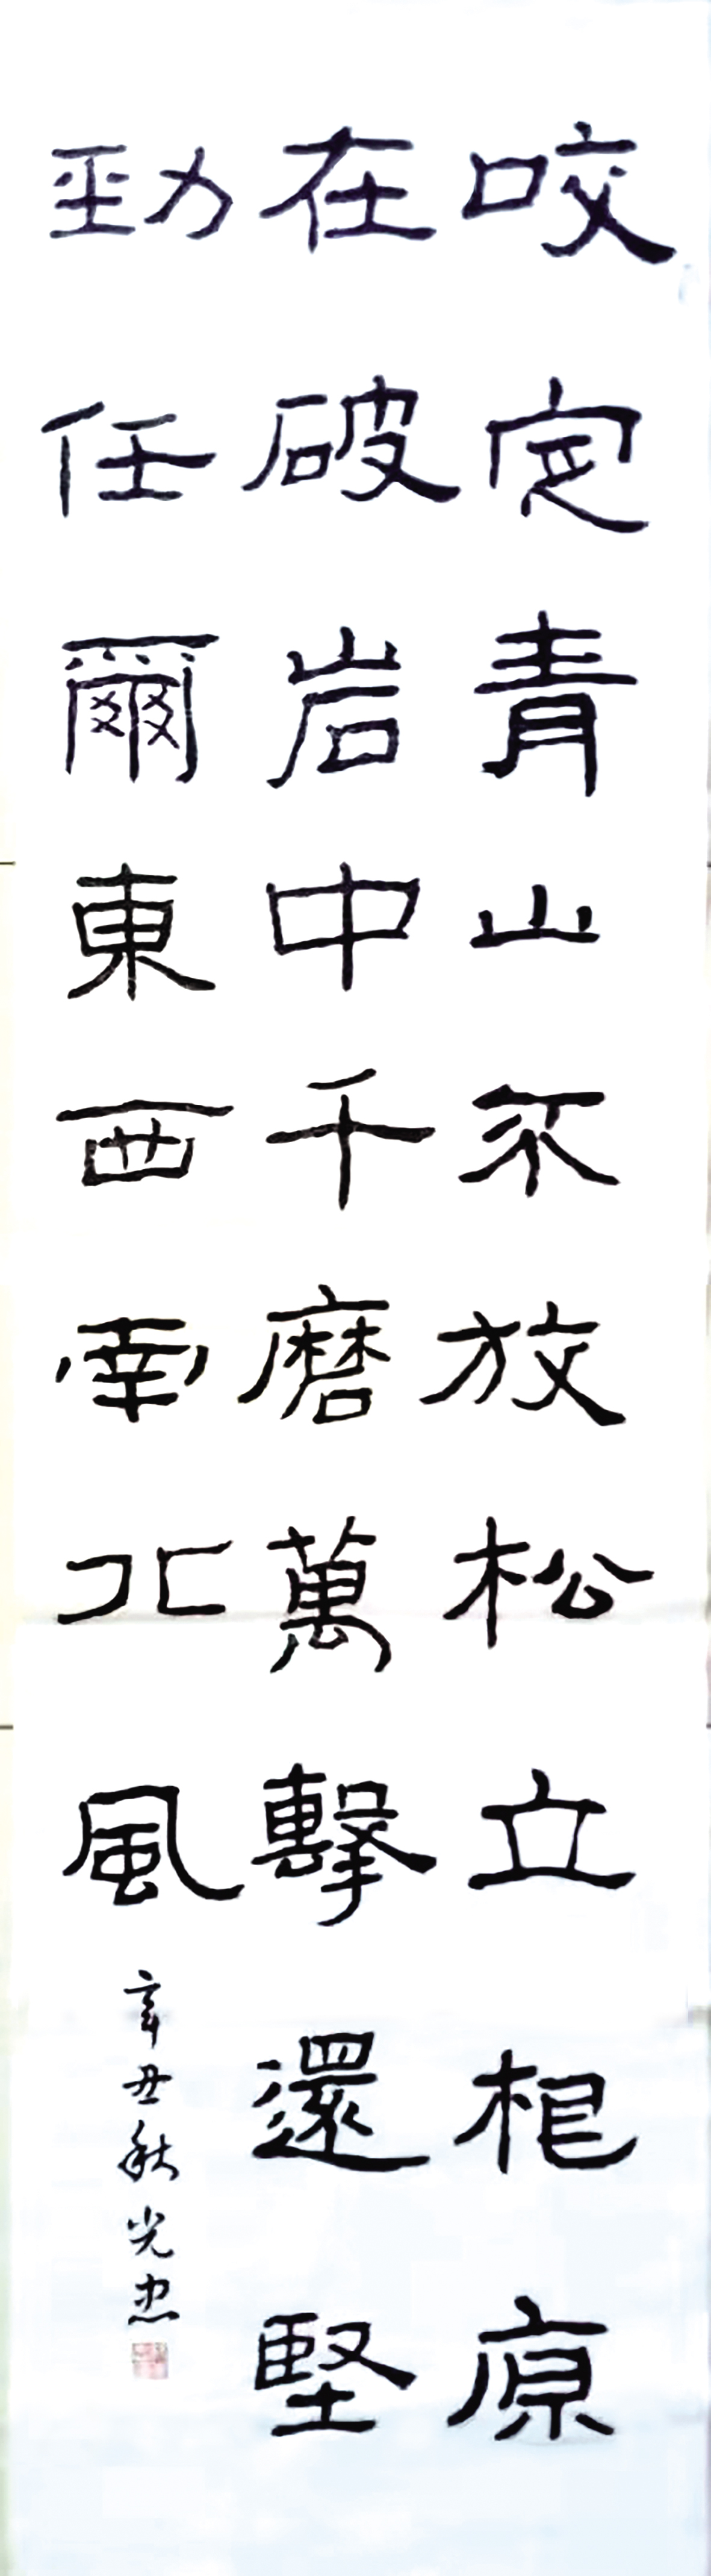 咬定青山不放松立根原
在破岩中千磨萬擊還堅
勁任爾東西南北風
辛丑秋光忠